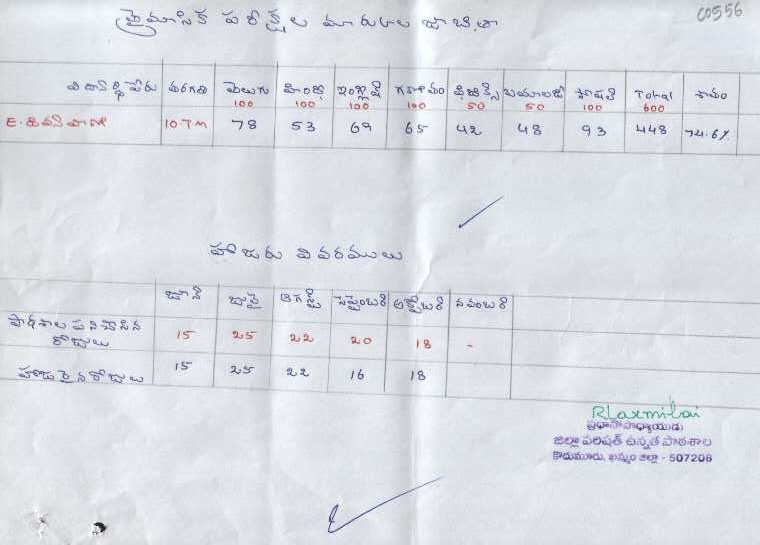 C0556
త్రైమాసిక పరీక్షల మార్కుల జాబితా
విద్యార్థి పేరు తరగతి తెలుగు హిందీ ఇంగ్లీషు గణితం ఫిజిక్స్ బయాలజీ సోషల్ Total శాతం
100 100 100 100 50 50 100 600
E. 10 TM 78 53 69 65 42 48 93 448 74.6%
హాజరు వివరములు
జూన్ జులై ఆగష్టు సెప్టెంబర్ అక్టోబర్ నవంబర్
పాఠశాల పనిచేసిన
రోజులు 15 25 22 20 18 -
హాజరైన రోజులు 15 25 22 16 18
RLaxmibai
ప్రధానోపాధ్యాయుడు
జిల్లా పరిషత్ ఉన్నత పాఠశాల
కొదుమూరు, ఖమ్మం జిల్లా - 507208